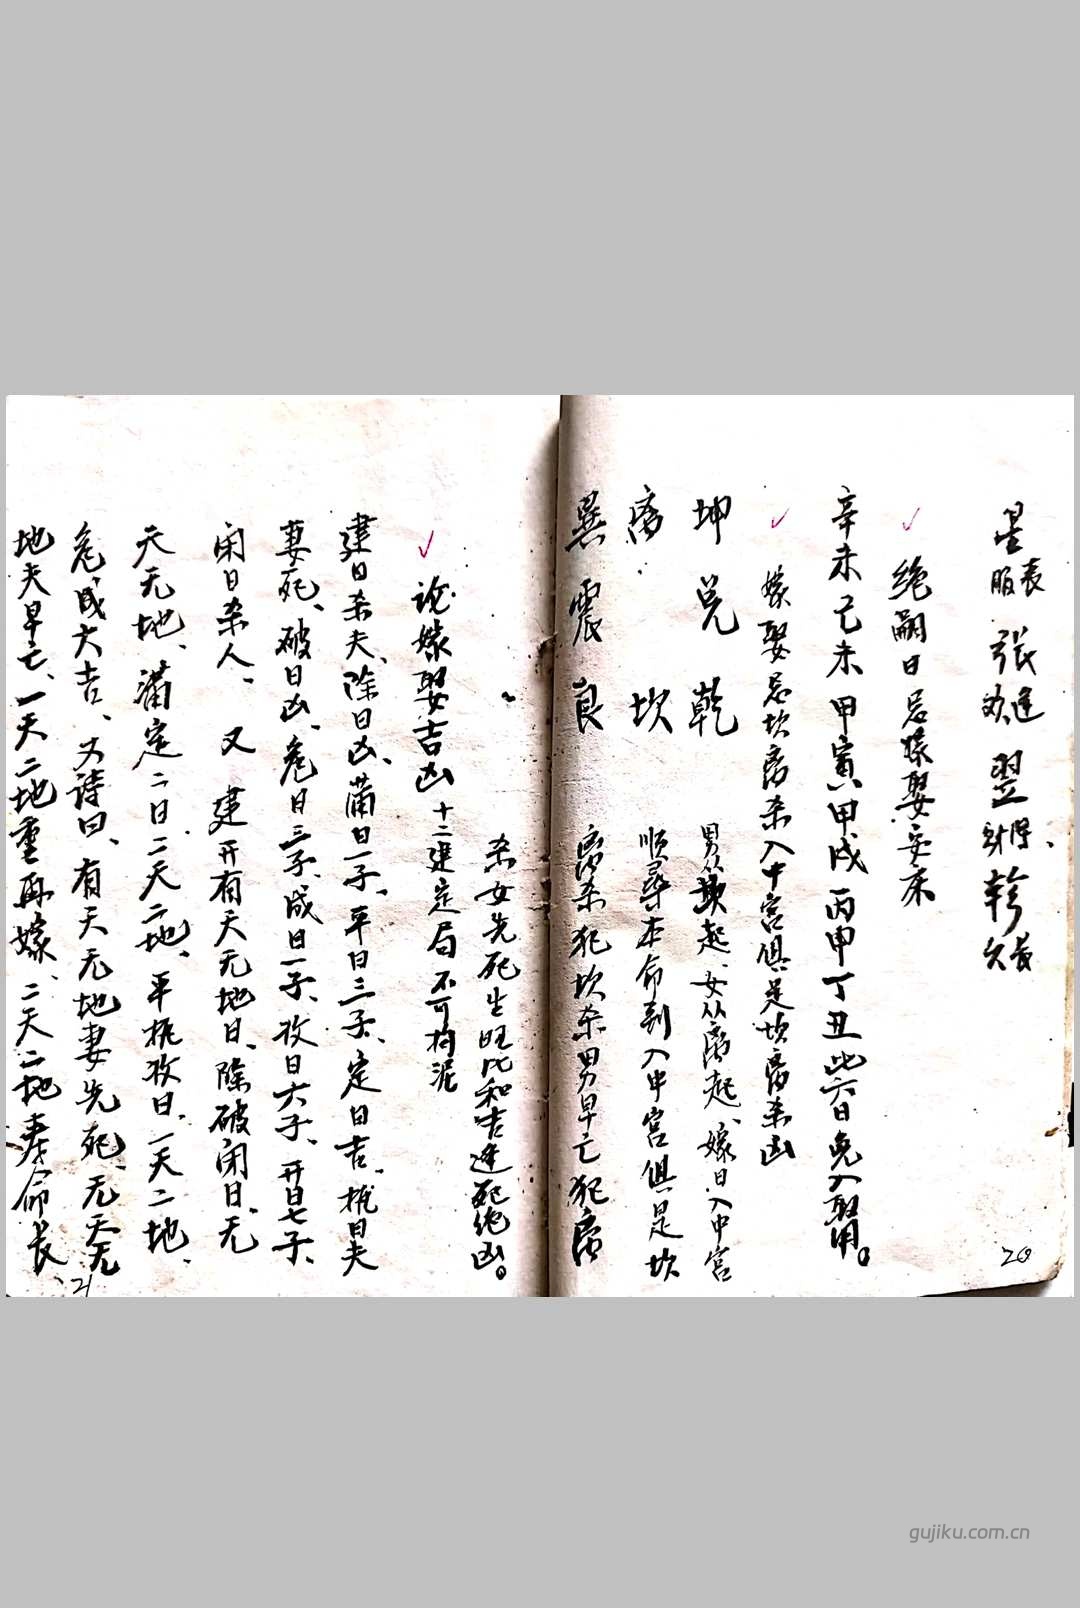 星 丧服 張 進 翌 得財 軫 久長
绝嗣日忌嫁娶安床
辛未己未甲寅甲戌丙申丁丑此六日兔入取用。
嫁娶忌坎离杀入中宫俱是坎离杀凶
坤兑乾 男从坎起、女从离起、嫁日入中宫
离 坎 順尋本命到入中宫俱是坎
巽震艮 离杀犯坎杀男早亡犯离
杀女先死生旺比和吉逢死绝凶。
论嫁娶吉凶 十二建定局不可拘泥
建日杀夫、除日凶、满日一子、平日三子、定日吉、执日夫
妻死、破日凶、危日三子、成日一子、收日六子、开日七子、
闭日杀人、又 建开有天无地日、除破闭日、无
天无地、满定二日二天二地、平执收日、一天二地、
危成大吉、又诗曰、有天无地妻先死、无天无
地夫早亡、一天二地重再嫁、二天二地寿命长、
20
21
gujiku.com.cn